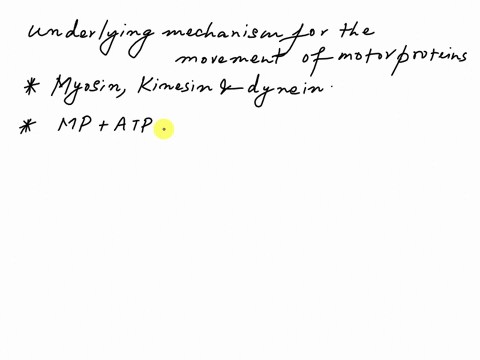 underlying mechanism for the
movement of motorproteins
* Myosin, Kinesin & dynein.
* MP + ATP